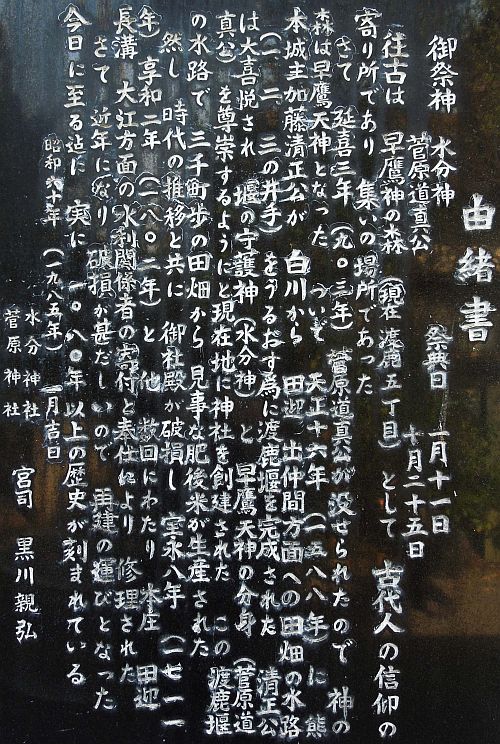 由緒書
御祭神 水分神 祭典日 一月十一日
菅原道真公 十月二十五日
往古は 早鷹神の森 (現在 渡鹿五丁目) として 古代人の信仰の
寄り所であり 集いの場所であった
さて 延喜三年 (九〇三年) 菅原道真公が没せられたので 神の
森は早鷹天神となった ついで 天正十六年 (一五八八年) に 熊
本城主加藤清正公が 白川から 田迎 出仲間方面への田畑の水路
(一、二、三の井手) をうるおす為に渡鹿堰を完成された 清正公
は大喜悦され 堰の守護神 (水分神) と 早鷹天神の分身 (菅原道
真公) を尊崇するようにと現在地に神社を創建された この 渡鹿堰
の水路で 三千町歩の田畑から 見事な肥後米が生産された
然し 時代の推移と共に 御社殿が破損し 宝永八年 (一七一一
年) 享和二年 (一八〇二年) と 他 数回にわたり 本庄 田迎
長溝 大江方面の水利関係者の寄付と奉仕により 修理された
さて 近年になり 破損が甚だしいので 再建の運びとなった
今日に至る迄に 実に 一〇八〇年以上の歴史が刻まれている
昭和六十年 (一九八五年) 一月吉日
水分神社
菅原神社 宮司 黒川親弘